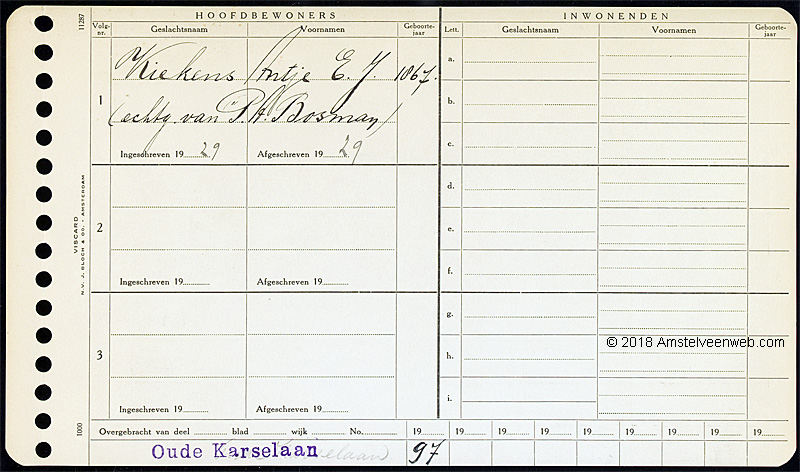 HOOFDBEWONERS
INWONENDEN
11287
Volg-nr.
Geslachtsnaam
Voornamen
Geboorte-jaar
Lett.
Geslachtsnaam
Voornamen
Geboorte-jaar
1
Kiekens Antje E. J. 1867.
(echtg. van P. A. Bosman)
Ingeschreven 1929
Afgeschreven 1929
a.
b.
c.
2
Ingeschreven 19
Afgeschreven 19
d.
e.
f.
3
Ingeschreven 19
Afgeschreven 19
g.
h.
i.
© 2018 Amstelveenweb.com
VISCARD
N.V. J. BLOCH & CO. - AMSTERDAM
1000
Overgebracht van deel blad wijk No. 19 19 19 19 19 19 19 19 19
Oude Karselaan 97